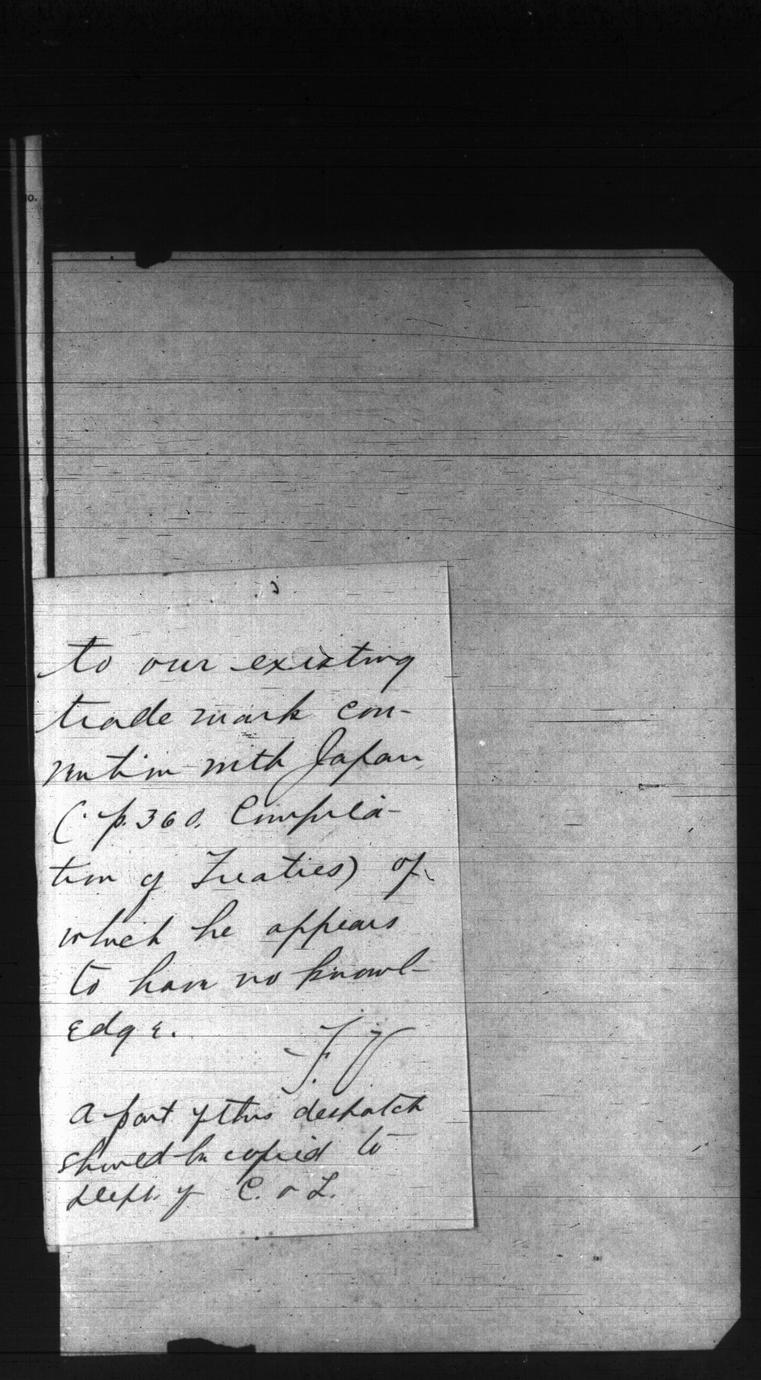 to our existing
trade mark con-
vention with Japan
(p. 360. Compila-
tion of Treaties) of
which he appears
to have no knowl-
edge.
A part of this despatch
should be copied to
Dept. of C. & L.